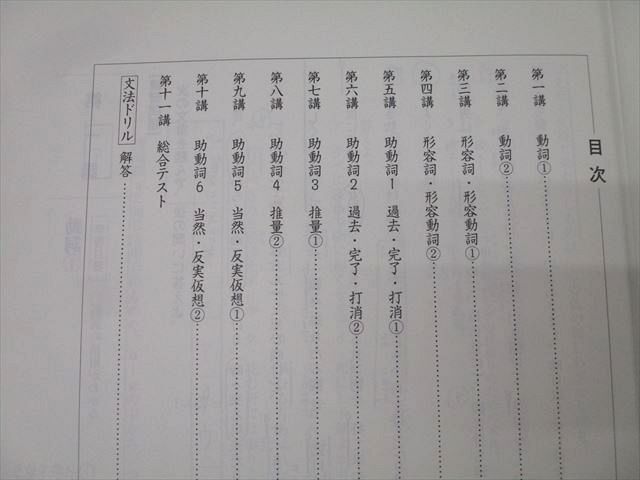 目次
第一講 動詞①
第二講 動詞②
第三講 形容詞・形容動詞①
第四講 形容詞・形容動詞②
第五講 助動詞1 過去・完了・打消①
第六講 助動詞2 過去・完了・打消②
第七講 助動詞3 推量①
第八講 助動詞4 推量②
第九講 助動詞5 当然・反実仮想①
第十講 助動詞6 当然・反実仮想②
第十一講 総合テスト
文法ドリル 解答